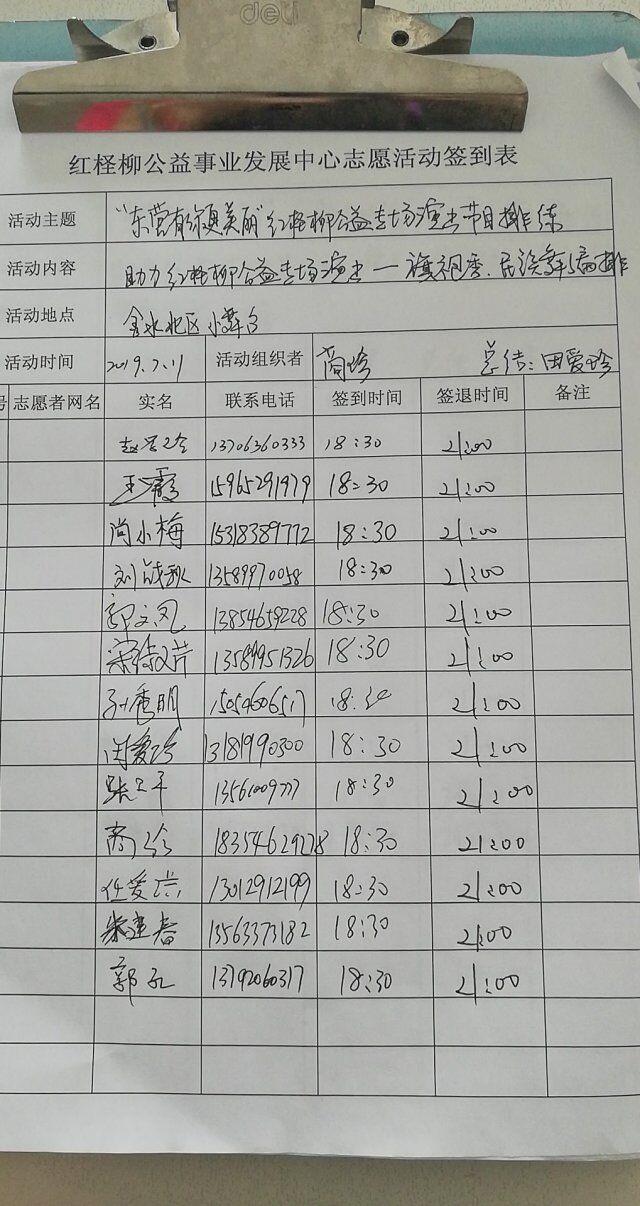 deli
红柽柳公益事业发展中心志愿活动签到表
活动主题 “东营有你更美丽”红柽柳公益专场演出节目排练
活动内容 助力红柽柳公益专场演出—旗袍秀、民族舞
活动地点 金水北区小舞台
活动时间 2019.7.11 活动组织者 商珍 总结：田爱珍
号 志愿者网名 实名 联系电话 签到时间 签退时间 备注
13706360333 18:30 21:00
王霞 15965291979 18:30 21:00
尚小梅 15318389772 18:30 21:00
刘战秋 13589970058 18:30 21:00
郭文凤 13854659228 18:30 21:00
13589951326 18:30 21:00
孙秀明 15054606517 18:30 21:00
田爱珍 13181990300 18:30 21:00
张三平 13561009777 18:30 21:00
商珍 18354629278 18:30 21:00
任爱兰 13012912199 18:30 21:00
朱建春 13563373182 18:30 21:00
郭 13792060317 18:30 21:00